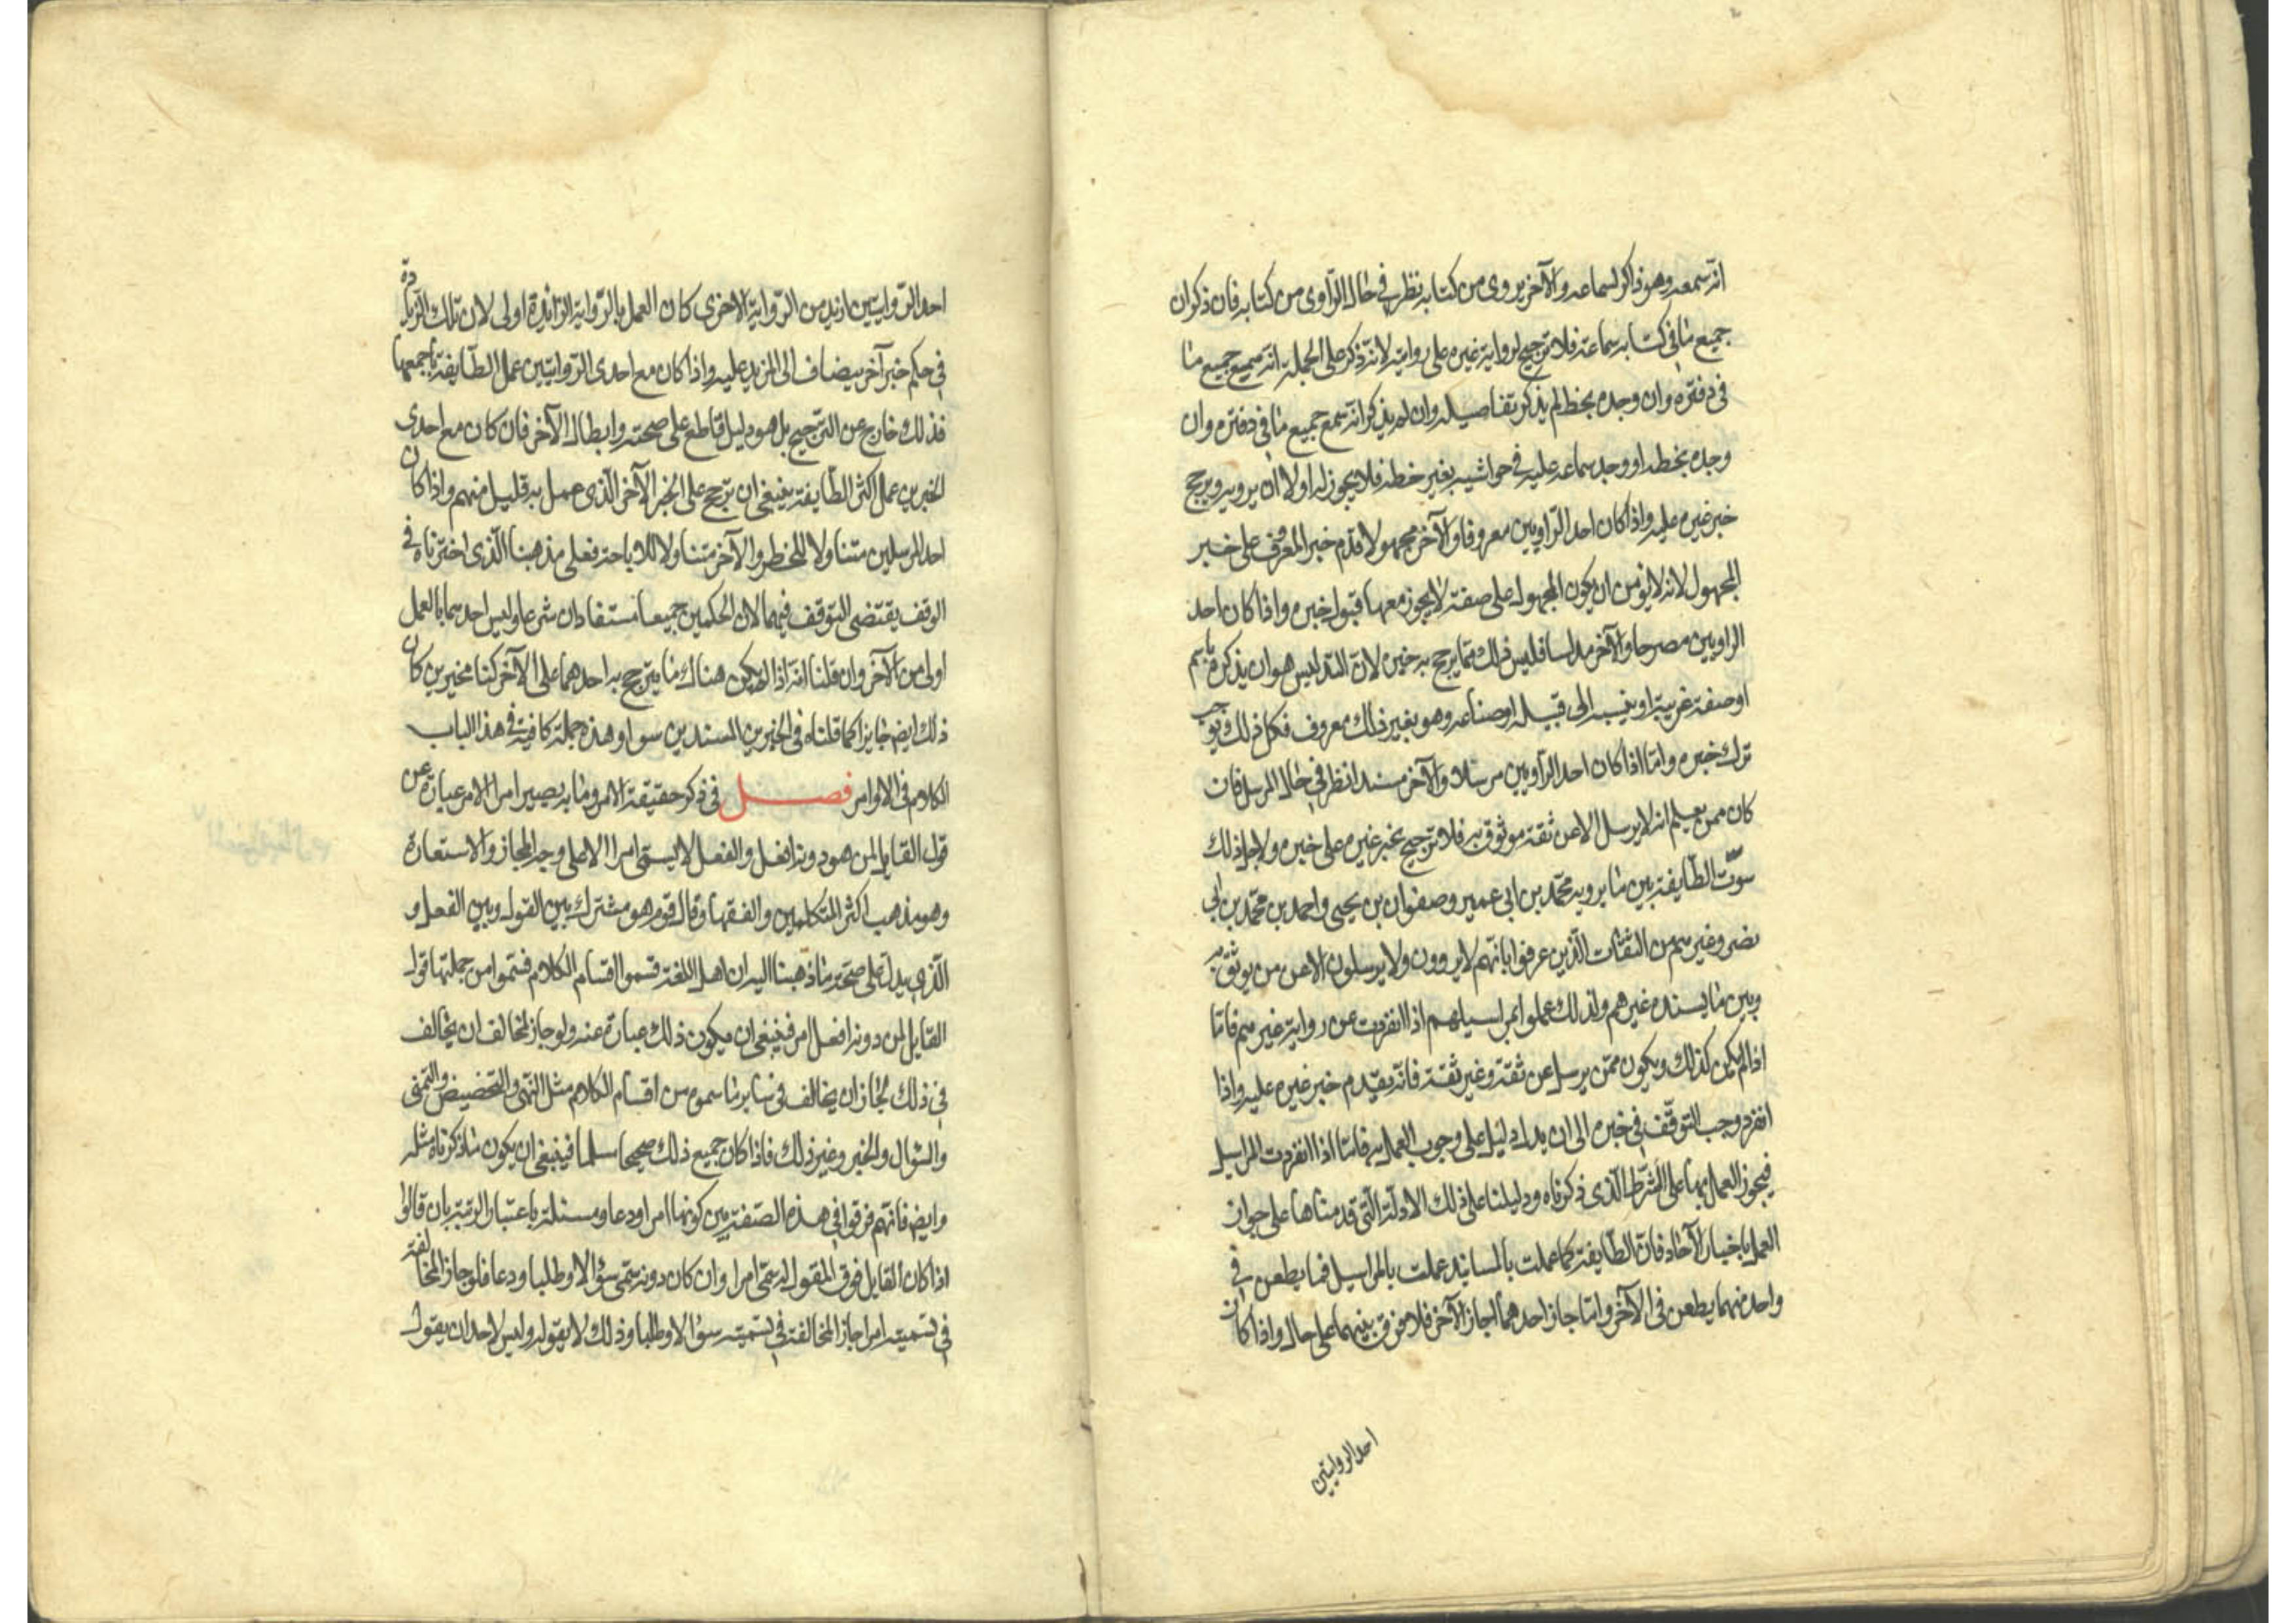 انه سمعه وهو ذاكر لسماعه والآخر يروى من كتابه نظر فى حال الراوى من كتابه فان ذكر ان
جميع ما فى كتابه سماعه فلا ترجيح لرواية غيره على روايته لانه ذكر على الجملة انه سمع جميع ما
فى دفتره وان وجده بخط لم يذكر تفاصيله وان لم يذكر انه سمع جميع ما فى دفتره وان
وجده بخطه او وجد سماعه عليه فى حواشيه بغير خطه فلا يجوز له اولا ان يرويه ويرجح
خبر غيره عليه واذا كان احد الراويين معروفا والآخر مجهولا قدم خبر المعروف على خبر
المجهول لانه لا يؤمن ان يكون المجهول على صفة لا يجوز معها قبول خبره واذا كان احد
الراويين مصرحا والآخر مدلسا فليس ذلك مما يرجح به خبره لان التدليس هو ان يذكره باسم
او صفة غريبة او ينسبه الى قبيله او صناعه وهو بغير ذلك معروف فكل ذلك لا يوجب
ترك خبره واما اذا كان احد الراويين مرسلا والآخر مسندا نظر فى حال المرسل فان
كان ممن يعلم انه لا يرسل الا عن ثقة موثوق به فلا ترجيح بخبر غيره على خبره ولاجل ذلك
سوّت الطايفة بين ما يرويه محمد بن ابى عمير وصفوان بن يحيى واحمد بن محمد بن ابى
نصر وغيرهم من الثقات الذين عرفوا بانهم لا يروون ولا يرسلون الا عن من يوثق به
وبين ما يسنده غيرهم ولذلك عملوا بمراسيلهم اذا انفردت عن رواية غيرهم فاما
اذا لم يكن كذلك ويكون ممن يرسل عن ثقة وغير ثقة فانه يقدم خبر غيره عليه واذا
انفرد وجب التوقف فى خبره الى ان يدل دليل على وجوب العمل به فاما اذا انفردت المراسيل
فيجوز العمل بها على الشرط الذى ذكرناه ودليلنا على ذلك الادلة التى قدمناها على جواز
العمل باخبار الآحاد فان الطايفة كما عملت بالمسانيد عملت بالمراسيل فما يطعن فى
واحد منهما يطعن فى الآخر وما اجاز احدهما اجاز الآخر فلا فرق بينهما على حال واذا كان
احد الروايتين
احد الروايتين ازيد من الرواية الاخرى كان العمل بالرواية الزائدة اولى لان تلك الزيادة
فى حكم خبر آخر يضاف الى المزيد عليه واذا كان مع احدى الروايتين عمل الطايفة باجمعها
فذلك خارج عن الترجيح بل هو دليل قاطع على صحته وابطال الآخر فان كان مع احدى
الخبرين عمل اكثر الطايفة ينبغى ان يرجح على الخبر الآخر الذى عمل به قليل منهم واذا كان
احد المرسلين متناولا للحظر والآخر متناولا للاباحة فعلى مذهبنا الذى اخترناه فى
الوقف يقتضى التوقف فيهما لان الحكمين جميعا مستفادان شرعا وليس احدهما بالعمل
اولى من الآخر وان قلنا انه اذا لم يكن هناك ما يترجح به احدهما على الآخر كنا مخيرين كان
ذلك ايضا جايزا كما قلناه فى الخبرين المسندين سوا وهذه جملة كافية فى هذا الباب
الكلام فى الاوامر فصل فى ذكر حقيقة الامر وما به يصير امرا الامر عبارة عن
قول القايل لمن هو دونه افعل والفعل لا يسمى امرا الا على وجه المجاز والاستعارة
وهو مذهب اكثر المتكلمين والفقها وقال قوم هو مشترك بين القول وبين الفعل و
الذى يدل على صحة ما ذهبنا اليه ان اهل اللغة قسموا اقسام الكلام فسموا من جملتها قول
القايل لمن دونه افعل امر فينبغى ان يكون ذلك عبارة عنه ولو جاز لمخالف ان يخالف
فى ذلك لجاز ان يخالف فى ساير ما سموه من اقسام الكلام مثل النهى والتحضيض والتمنى
والسؤال والخبر وغير ذلك فاذا كان جميع ذلك صحيحا مسلما فينبغى ان يكون ما ذكرناه مثله
وايض فانهم فرقوا فى هذه الصفة بين كونها امرا ودعا ومسئلة باعتبار الرتبة بان قالوا
اذا كان القايل فوق المقول له سمى امرا وان كان دونه سمى سؤالا وطلبا ودعا فلو جاز المخالفة
فى تسميته امرا جاز المخالفة فى تسميته سؤالا وطلبا وذلك لا يقوله وليس لاحد ان يقول